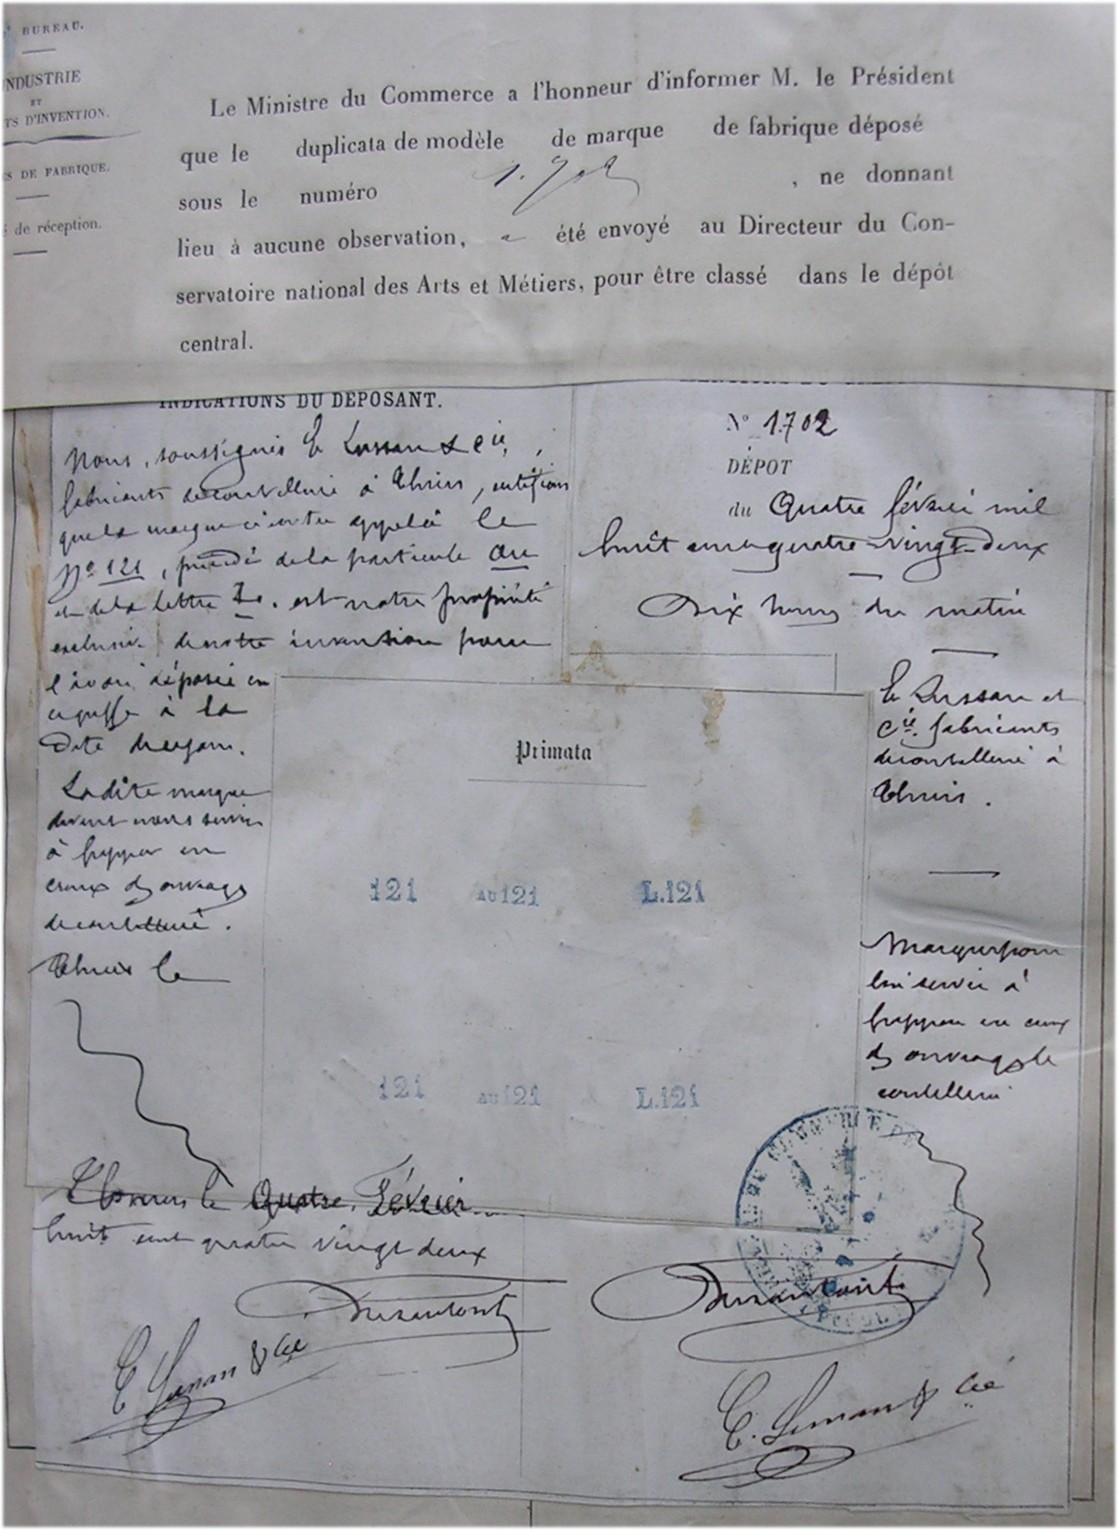 BUREAU.
INDUSTRIE
ET
TS D'INVENTION.
S DE FABRIQUE.
de réception.
Le Ministre du Commerce a l'honneur d'informer M. le Président
que le duplicata de modèle de marque de fabrique déposé
sous le numéro 1.702, ne donnant
lieu à aucune observation, a été envoyé au Directeur du Con-
servatoire national des Arts et Métiers, pour être classé dans le dépôt
central.
INDICATIONS DU DÉPOSANT.
Nous, soussignés & Cie,
fabricants de coutellerie à Thiers, certifions
que la marque ci contre appelée le
No 121, précédé de la particule au
et de la lettre L. est notre propriété
exclusive de notre invention pour
l'avoir déposée en
greffe à la
date de ce jour.
La dite marque
devant nous servir
à frapper en
creux des ouvrages
de coutellerie.
Thiers le
Thiers le Quatre Février
huit cent quatre vingt deux
Dusautoir
& Cie
No 1.702
DÉPOT
du Quatre février mil
huit cent quatre-vingt-deux
Dix heures du matin
et
Cie. fabricants
de coutellerie à
Thiers.
Marque pour
lui servir à
frapper en creux
des ouvrages de
coutellerie
Primata
121 AU 121 L.121
121 AU 121 L.121
Dusautoir
& Cie